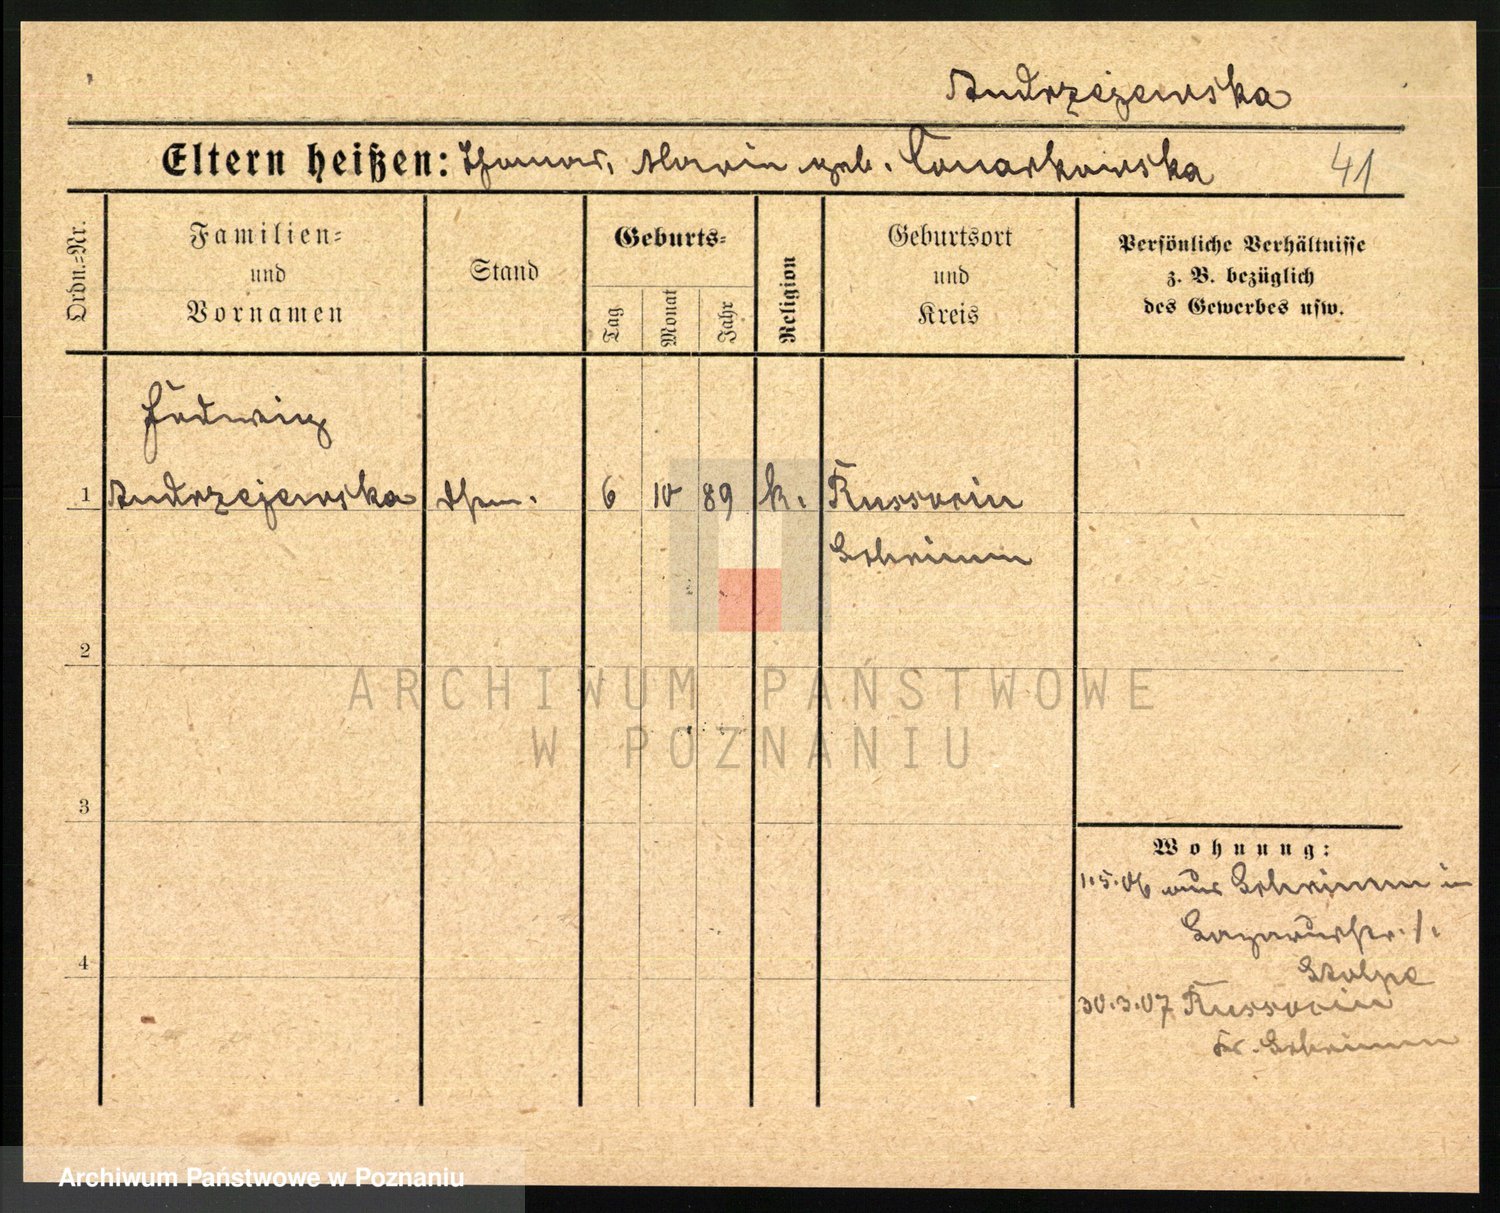 Andrzejewska
Eltern heißen: Thomas, Maria geb. Konarkowska
41
Ordn.-Nr.
Familien-
und
Vornamen
Stand
Geburts-
Tag
Monat
Jahr
Religion
Geburtsort
und
Kreis
Persönliche Verhältnisse
z. B. bezüglich
des Gewerbes usw.
Hedwig
1 Andrzejewska 6 10 89 k. Russocin
Schrimm
2
3
4
Wohnung:
1.5.06 aus Schrimm in
Lazarusstr. 1.
Stolpe
30.3.07 Russocin
Kr. Schrimm
ARCHIWUM PAŃSTWOWE
W POZNANIU
Archiwum Państwowe w Poznaniu